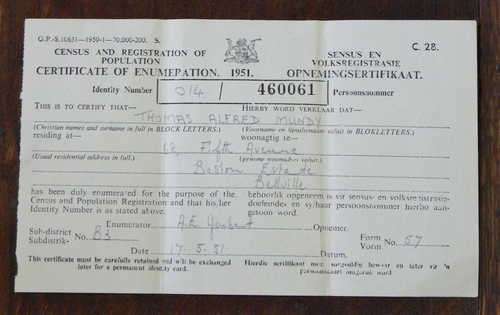 G.P.-S.10631—1950-1—70,000-200. S.
C. 28.
CENSUS AND REGISTRATION OF POPULATION
SENSUS EN VOLKSREGISTRASIE
CERTIFICATE OF ENUMERATION. 1951. OPNEMINGSERTIFIKAAT.
Identity Number 014 460061 Persoonsnommer
THIS IS TO CERTIFY THAT— HIERBY WORD VERKLAAR DAT—
THOMAS ALFRED MUNDY
(Christian names and surname in full in BLOCK LETTERS.) (Voorname en familienaam voluit in BLOKLETTERS.)
residing at— woonagtig te—
12, Fifth Avenue
(Usual residential address in full.) (gewone woonadres voluit.)
Boston Estate
Bellville
has been duly enumerated for the purpose of the behoorlik opgeneem is vir sensus- en volksregistrasie-
Census and Population Registration and that his/her doeleindes en sy/haar persoonsnommer hierbo aan-
Identity Number is as stated above. gatoon word.
Sub-district Subdistrik- No. B3 Enumerator A.E. Opnemer. Form Vorm No. 57
Date 17.5.51 Datum.
This certificate must be carefully retained and will be exchanged later for a permanent identity card.
Hierdie sertifikaat moet sorgvuldig bewaar en later vir 'n persoonskaart omgeruil word.